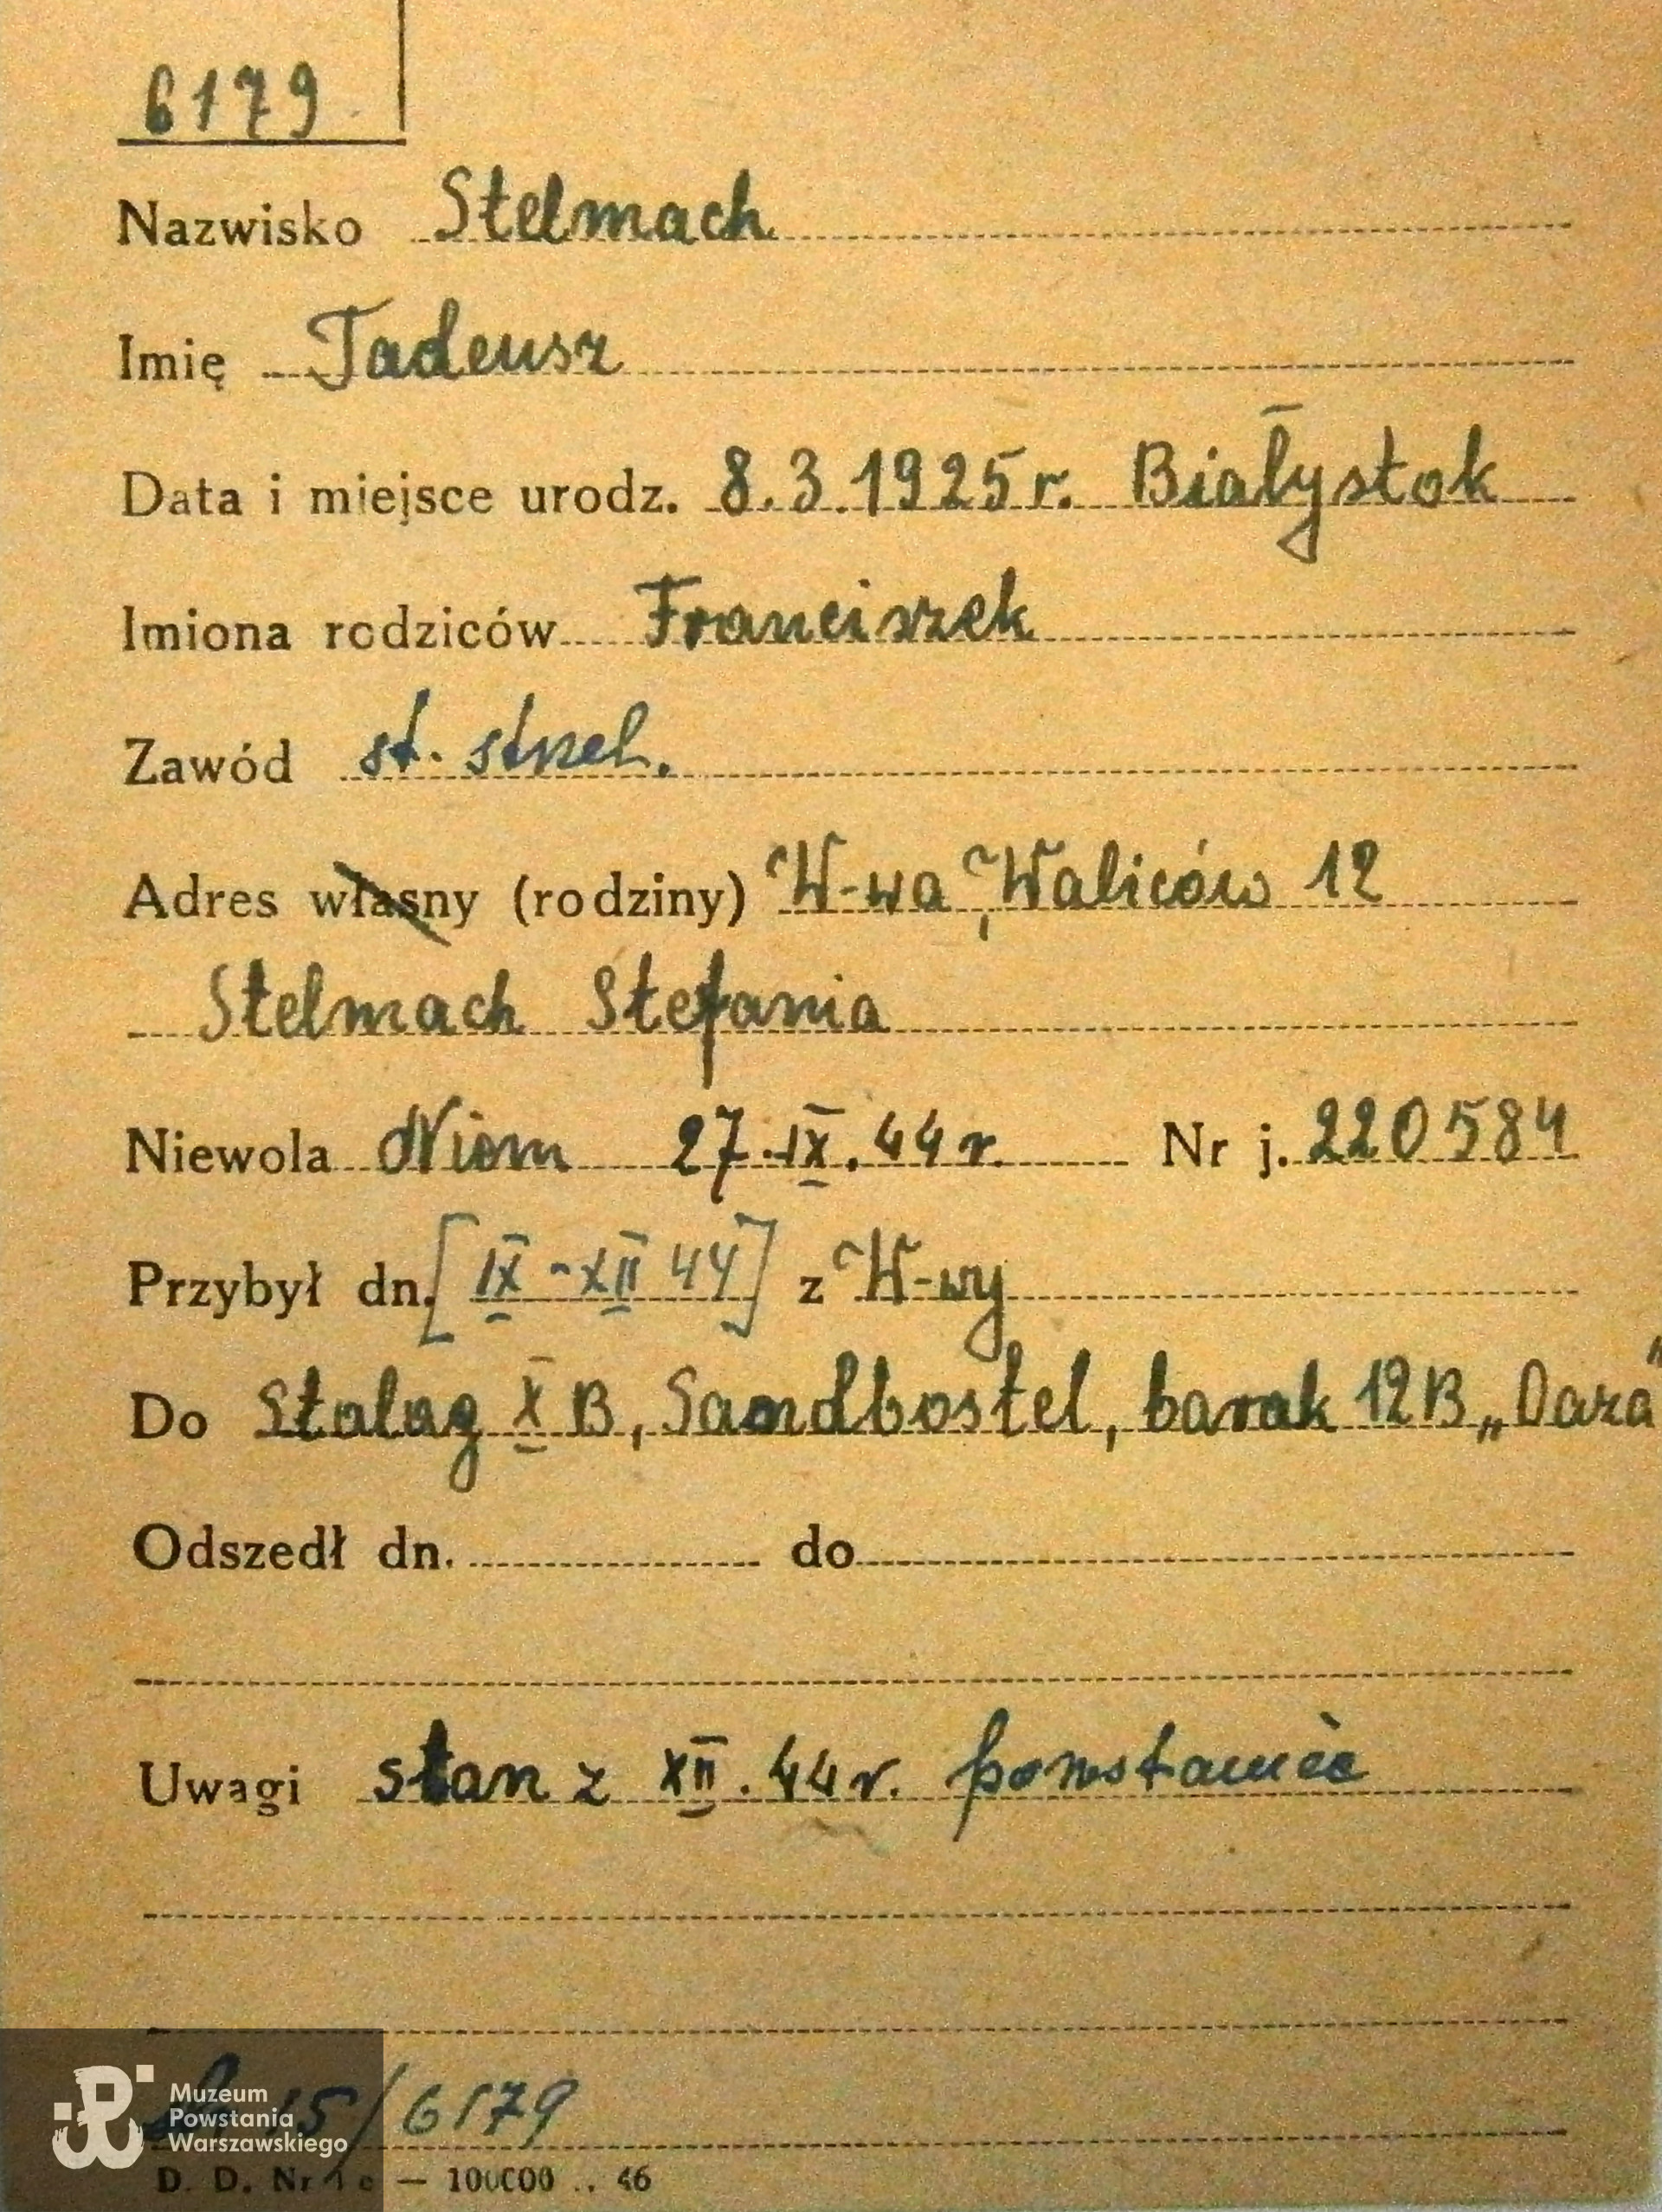 6179
Nazwisko Stelmach
Imię Tadeusz
Data i miejsce urodz. 8.3.1925 r. Białystok
Imiona rodziców Franciszek
Zawód st. strzel.
Adres własny (rodziny) W-wa, Waliców 12
Stelmach Stefania
Niewola Niem 27.IX.44 r. Nr j. 220584
Przybył dn. [IX - XII 44] z W-wy
Do Stalag X B, Sandbostel, barak 12B „Oaza"
Odszedł dn. do
Uwagi stan z XII.44 r. powstaniec
15/6179
Muzeum
Powstania
Warszawskiego
D. D. Nr 1 e — 100000 .. 46